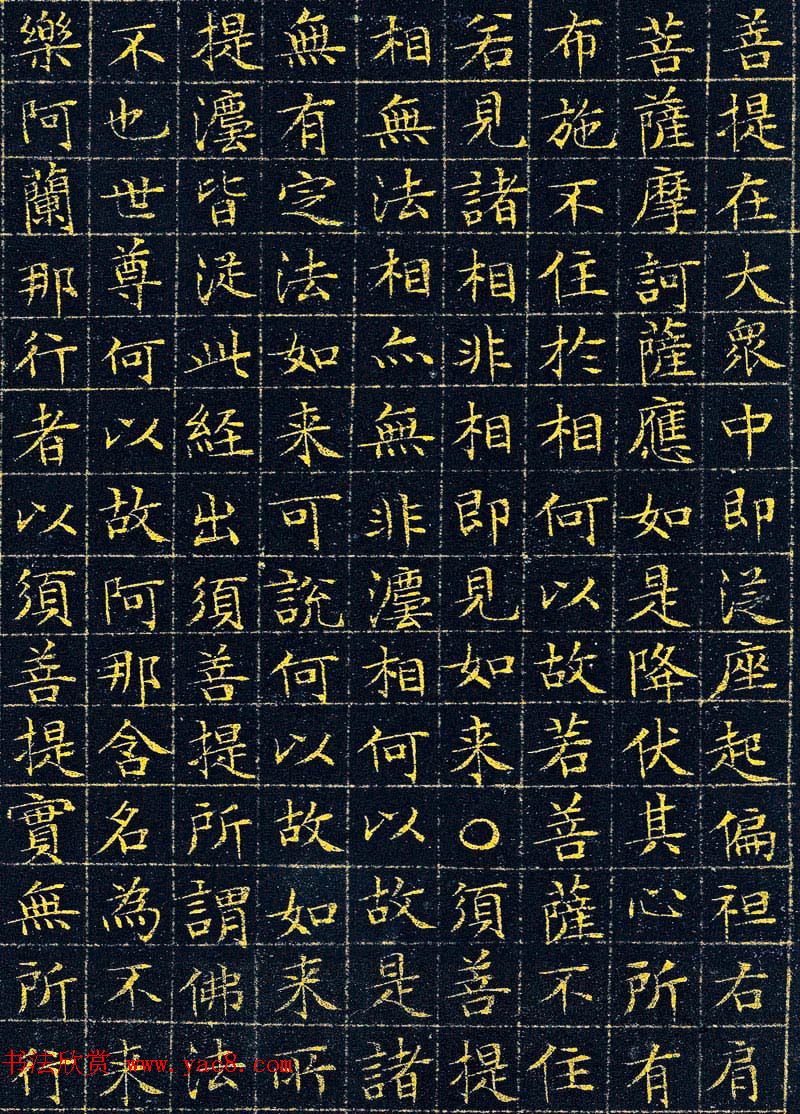 善提在大眾中即從座起偏袒右肩
菩薩摩訶薩應如是降伏其心所有
布施不住於相何以故若善薩不住
若見諸相非相即見如来○須善提
相無法相亦無非灋相何以故是諸
無有定法如来可說何以故如来所
提灋皆從此経出須善提所謂佛法
不也世尊何以故阿那含名為不来
樂阿蘭那行者以須善提實無所行
书法欣赏 www.yac8.com